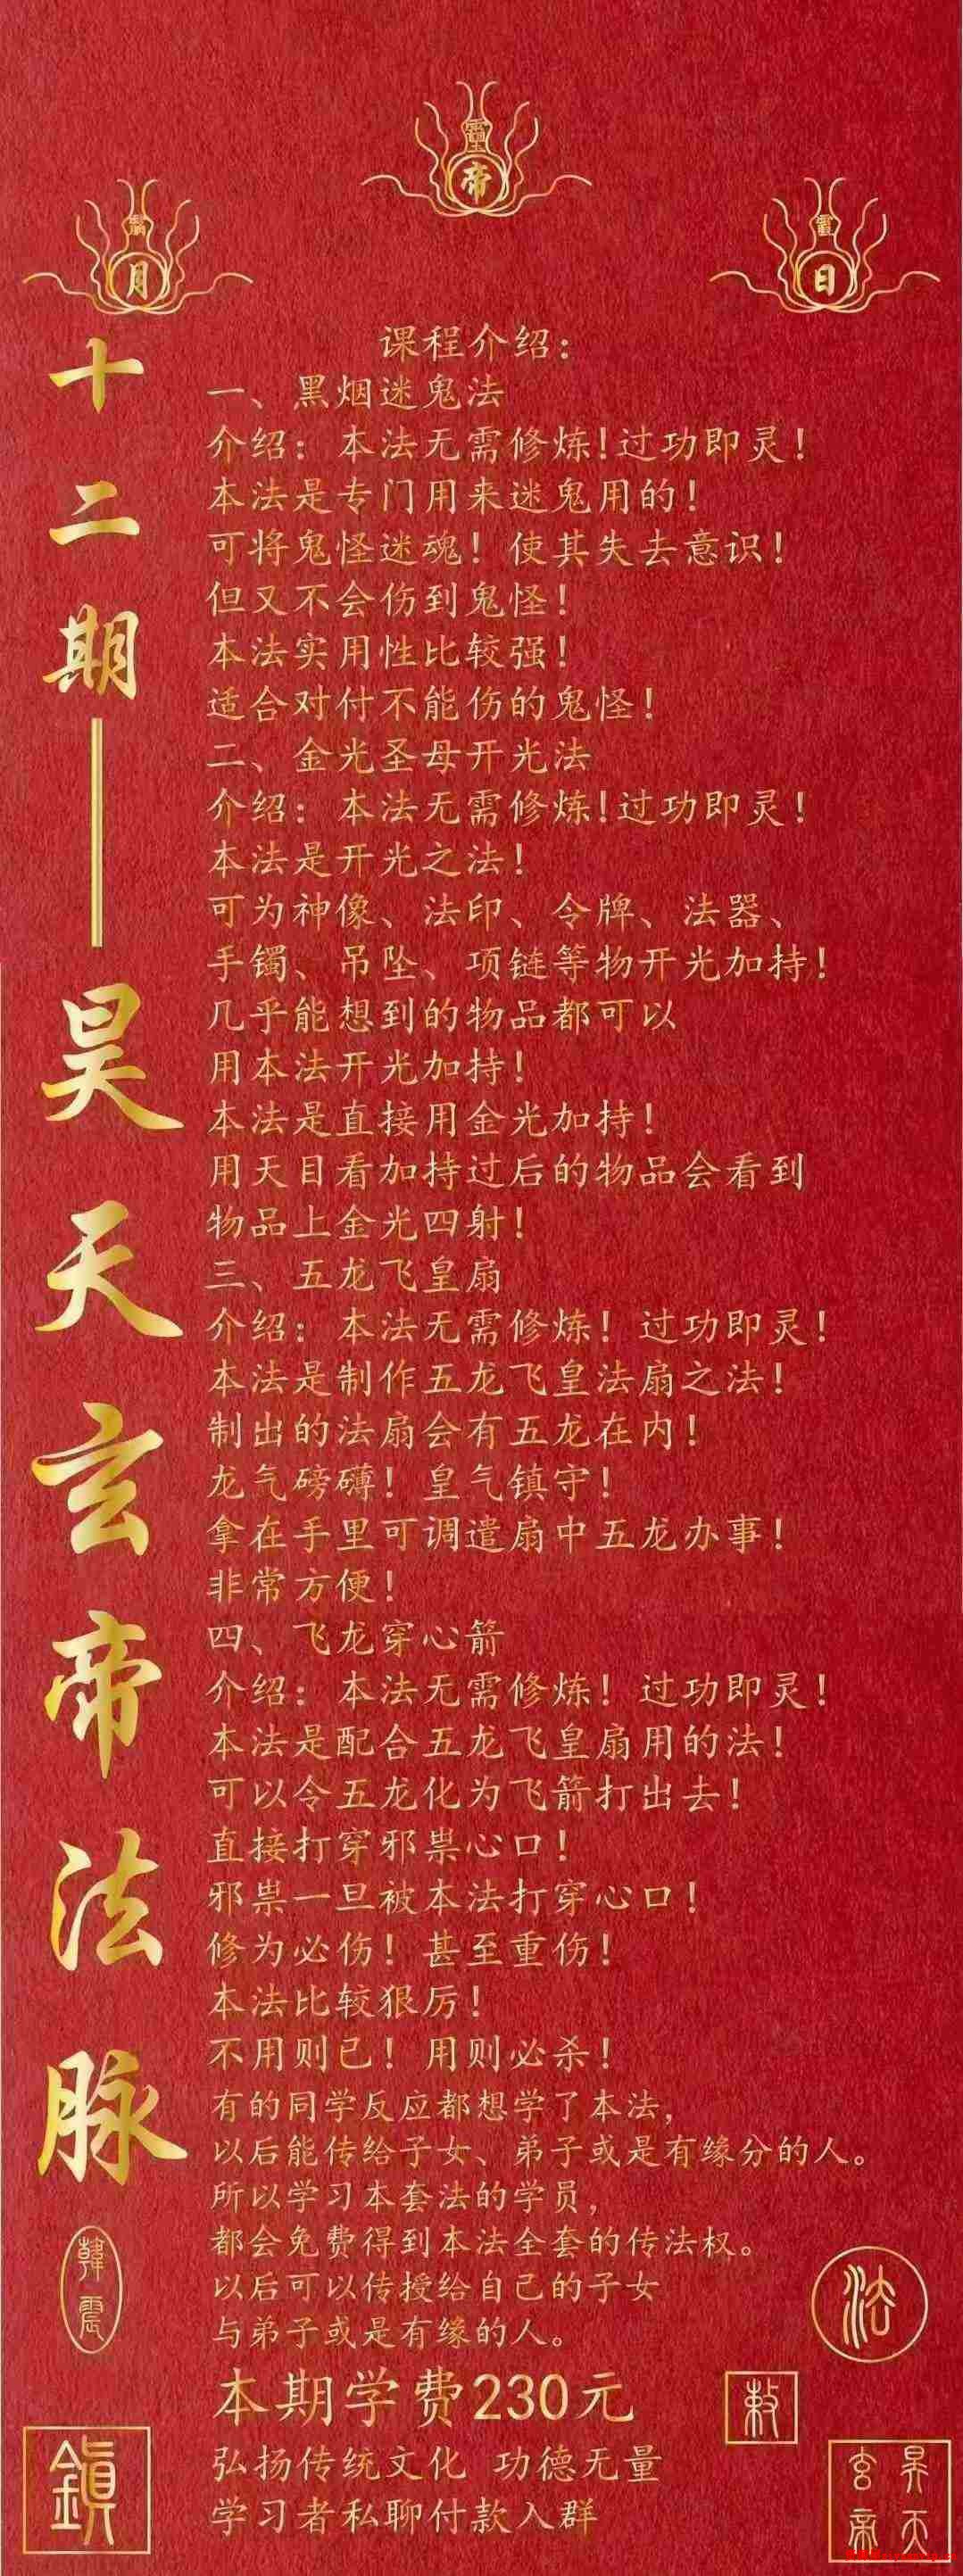 帝
月
日
十二期——昊天玄帝法脉
韩震
镇
课程介绍：
一、黑烟迷鬼法
介绍：本法无需修炼！过功即灵！
本法是专门用来迷鬼用的！
可将鬼怪迷魂！使其失去意识！
但又不会伤到鬼怪！
本法实用性比较强！
适合对付不能伤的鬼怪！
二、金光圣母开光法
介绍：本法无需修炼！过功即灵！
本法是开光之法！
可为神像、法印、令牌、法器、
手镯、吊坠、项链等物开光加持！
几乎能想到的物品都可以
用本法开光加持！
本法是直接用金光加持！
用天目看加持过后的物品会看到
物品上金光四射！
三、五龙飞皇扇
介绍：本法无需修炼！过功即灵！
本法是制作五龙飞皇法扇之法！
制出的法扇会有五龙在内！
龙气磅礴！皇气镇守！
拿在手里可调遣扇中五龙办事！
非常方便！
四、飞龙穿心箭
介绍：本法无需修炼！过功即灵！
本法是配合五龙飞皇扇用的法！
可以令五龙化为飞箭打出去！
直接打穿邪祟心口！
邪祟一旦被本法打穿心口！
修为必伤！甚至重伤！
本法比较狠厉！
不用则已！用则必杀！
有的同学反应都想学了本法，
以后能传给子女、弟子或是有缘分的人。
所以学习本套法的学员，
都会免费得到本法全套的传法权。
以后可以传授给自己的子女
与弟子或是有缘的人。
本期学费230元
弘扬传统文化 功德无量
学习者私聊付款入群
法
敕
昊天玄帝